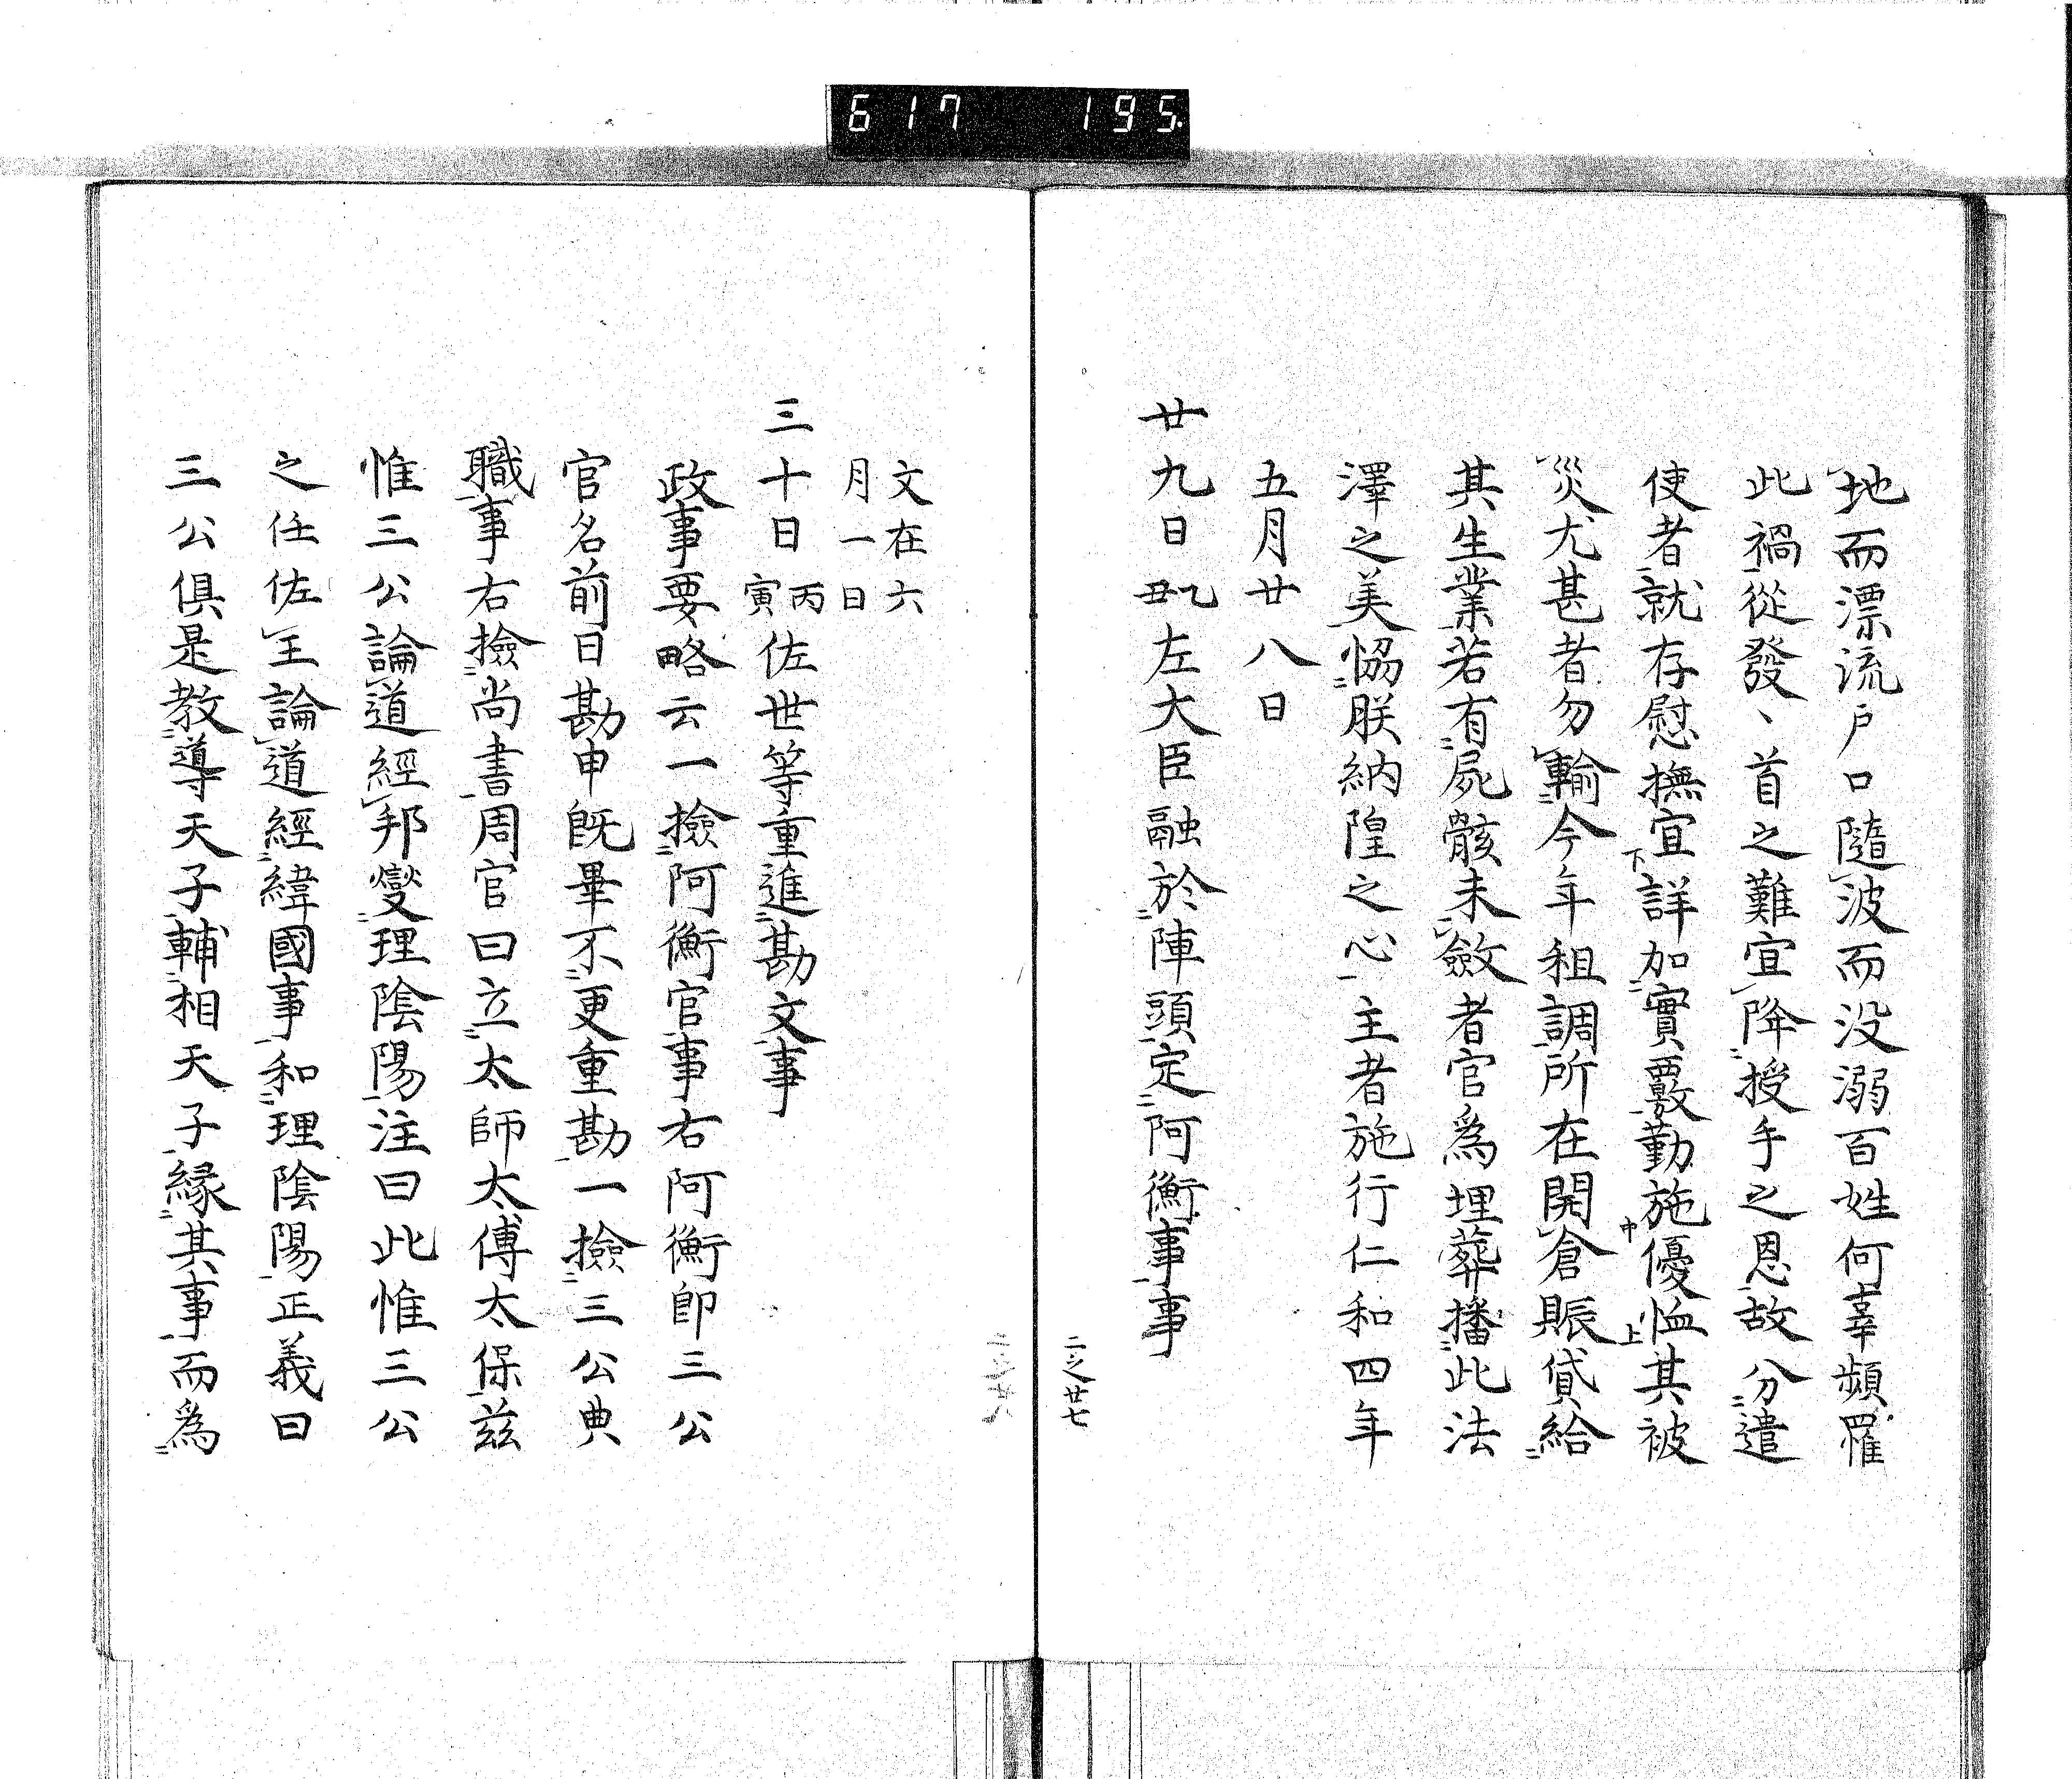 617 195.
地而漂流戸口隨波而没溺百姓何辜頻罹
此禍從發、首之難宜降授手之恩故分遣
使者就存慰撫宜詳加實覈勤施優恤其被
災尤甚者勿輸今年租調所在開倉賑貸給
其生業若有屍骸未斂者官爲埋葬播此法
澤之美恊朕納隍之心主者施行仁和四年
五月廿八日
廿九日乙丑左大臣融於陣頭定阿衡事事
二之廿七
文在六
月一日
三十日丙寅佐世等重進勘文事
政事要略云一撿阿衡官事右阿衡即三公
官名前日勘申既畢不更重勘一撿三公典
職事右撿尚書周官曰立太師太傅太保茲
惟三公論道經邦燮理陰陽注曰此惟三公
之任佐王論道經緯國事和理陰陽正義曰
三公俱是教導天子輔相天子縁其事而爲